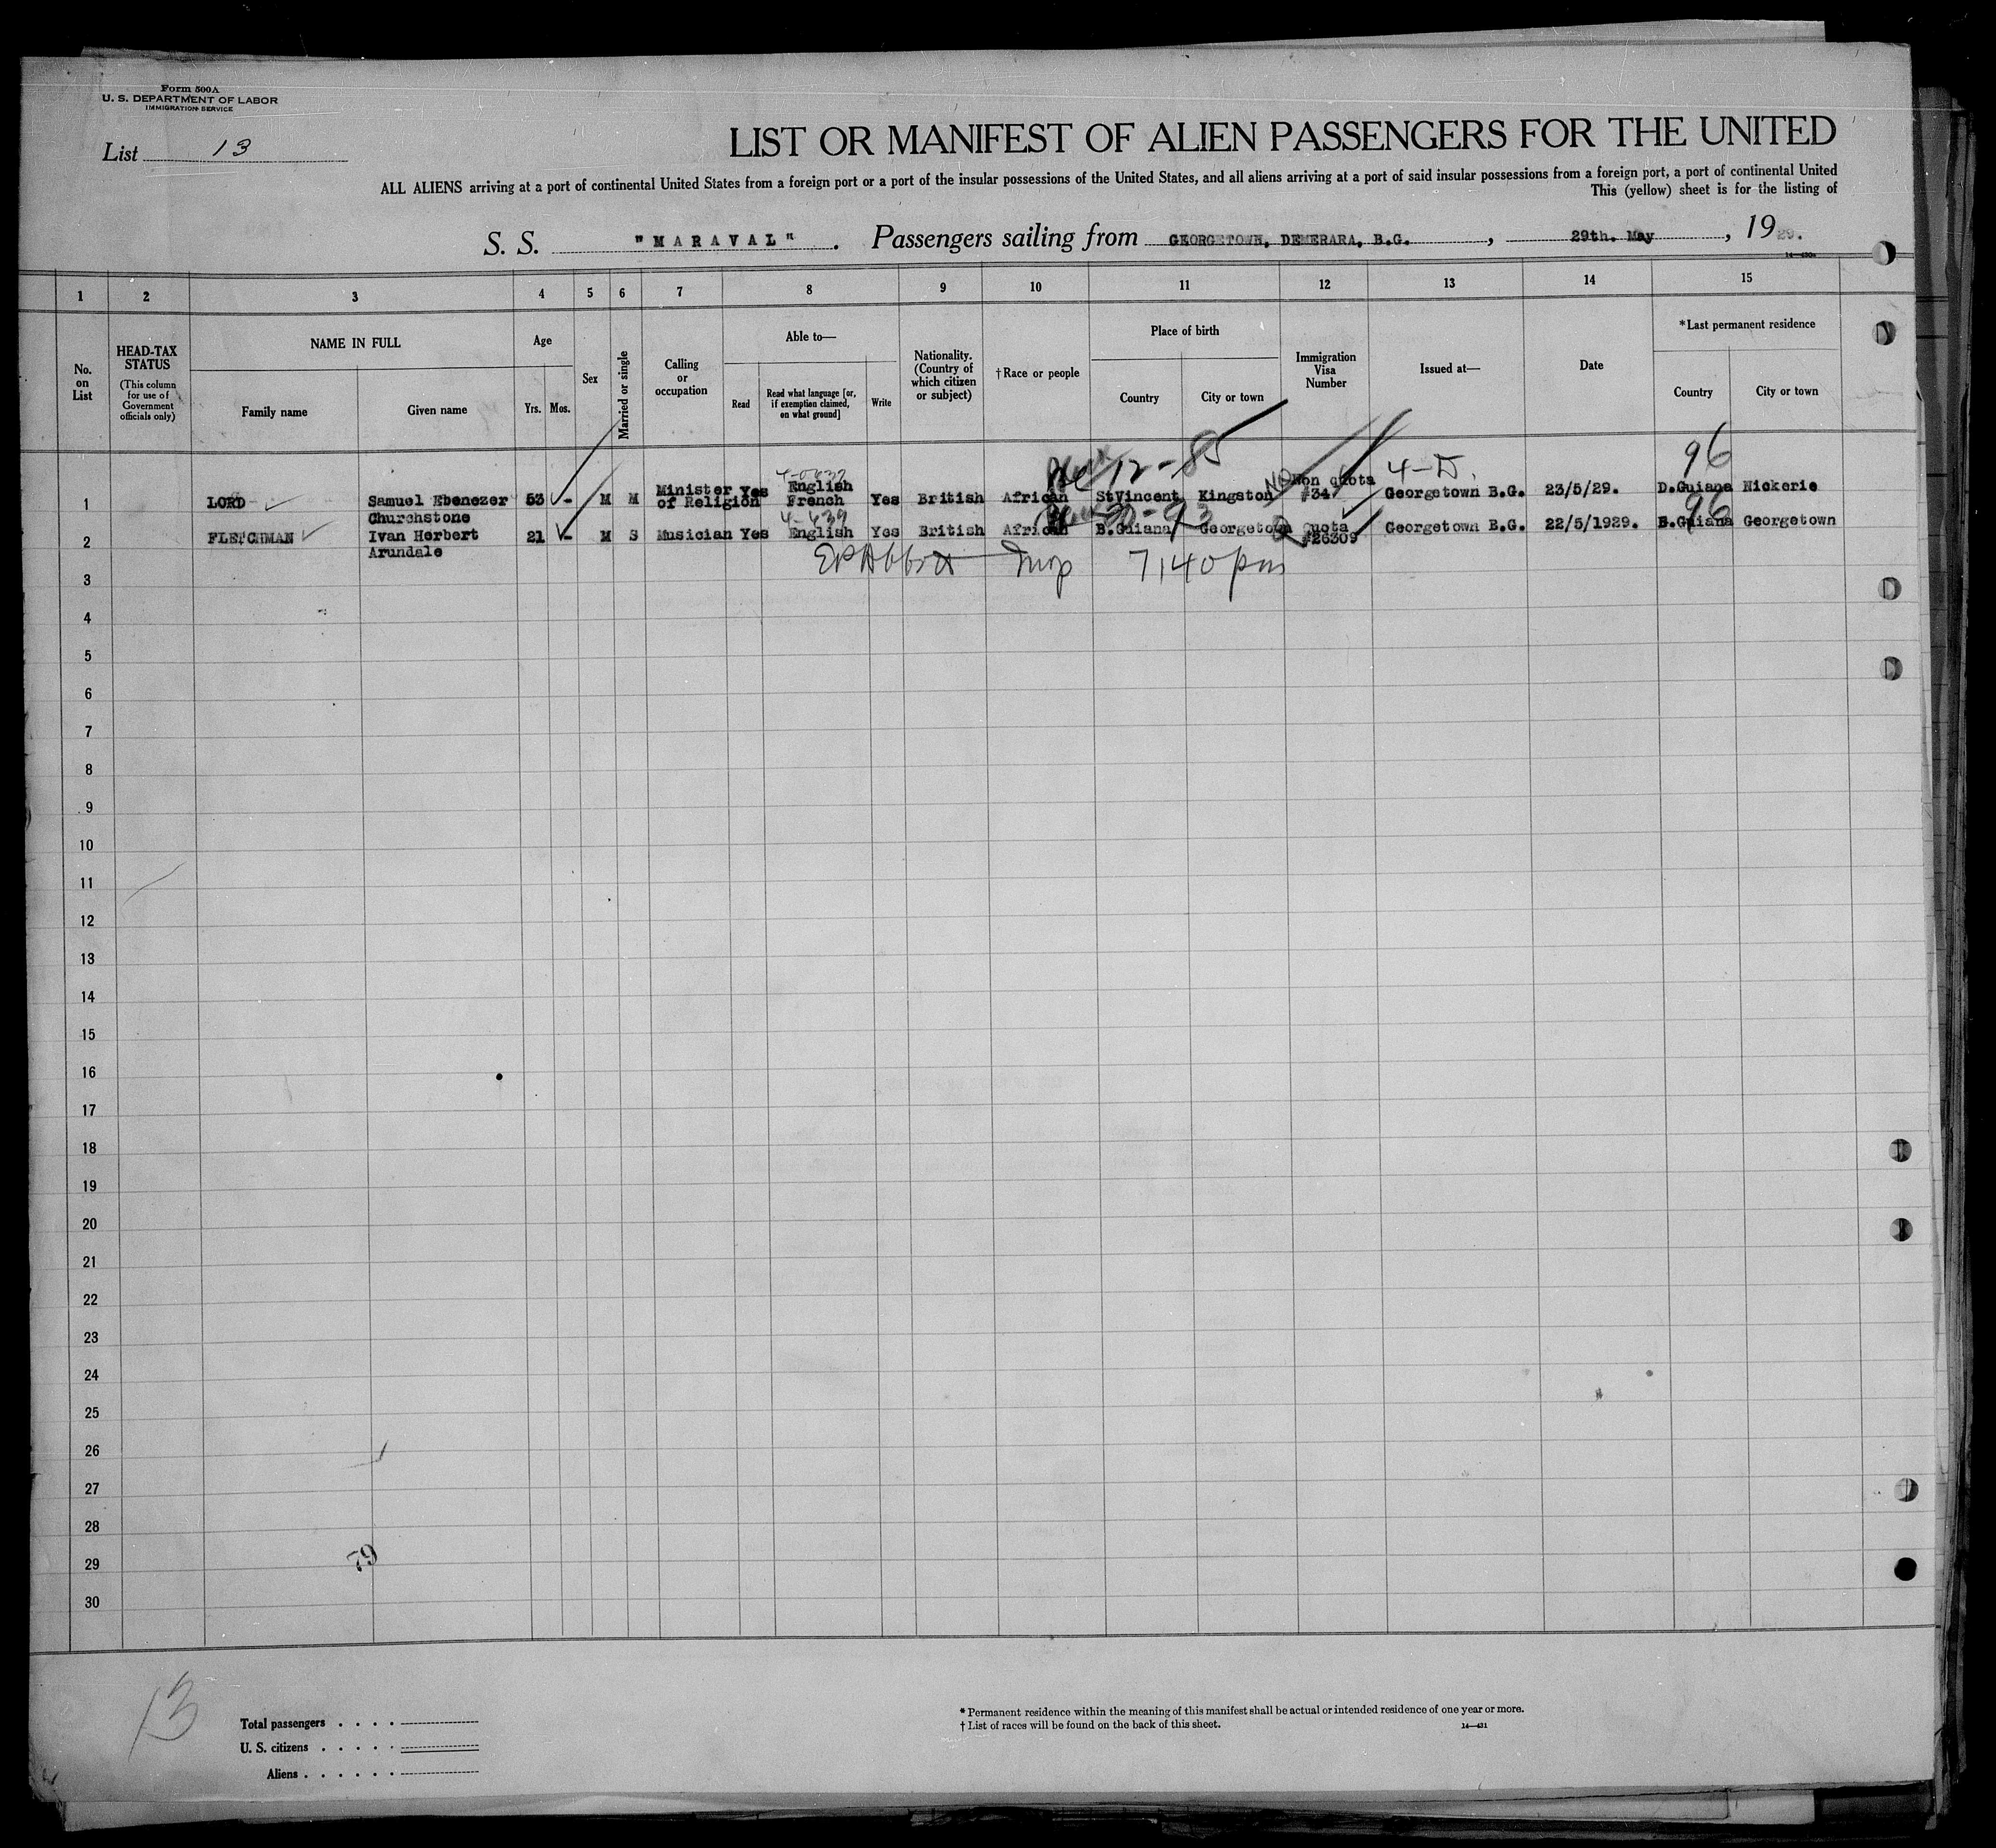 Form 500A
U. S. DEPARTMENT OF LABOR
IMMIGRATION SERVICE
List 13
LIST OR MANIFEST OF ALIEN PASSENGERS FOR THE UNITED
ALL ALIENS arriving at a port of continental United States from a foreign port or a port of the insular possessions of the United States, and all aliens arriving at a port of said insular possessions from a foreign port, a port of continental United
This (yellow) sheet is for the listing of
S. S. "MARAVAL" . Passengers sailing from GEORGETOWN, DEMERARA, B.G. , 29th. May , 1929.
14—430a
1 2 3 4 5 6 7 8 9 10 11 12 13 14 15
No. on List
HEAD-TAX STATUS
(This column for use of Government officials only)
NAME IN FULL
Family name
Given name
Age
Yrs. Mos.
Sex
Married or single
Calling or occupation
Able to—
Read
Read what language [or, if exemption claimed, on what ground]
Write
Nationality. (Country of which citizen or subject)
†Race or people
Place of birth
Country
City or town
Immigration Visa Number
Issued at—
Date
*Last permanent residence
Country
City or town
12-85 4-D. 96
1 LORD Samuel Ebenezer Churchstone 53 - M M Minister of Religion Yes English French Yes British African StVincent Kingston Non quota #34 Georgetown B.G. 23/5/29. D.Guiana Nickerie
4-439 96
2 FLETCHMAN Ivan Herbert Arundale 21 - M S Musician Yes English Yes British African B.Guiana Georgetown Quota #26309 Georgetown B.G. 22/5/1929. B.Guiana Georgetown
EP Abbott Insp 7,40 pm
3
4
5
6
7
8
9
10
11
12
13
14
15
16
17
18
19
20
21
22
23
24
25
26
27
28
29
30
79
13
Total passengers . . . .
U. S. citizens . . . . .
Aliens . . . . . .
* Permanent residence within the meaning of this manifest shall be actual or intended residence of one year or more.
† List of races will be found on the back of this sheet.
14—431